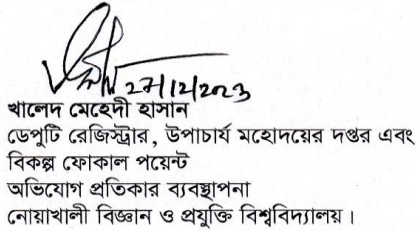 27/12/2023
খালেদ মেহেদী হাসান
ডেপুটি রেজিস্ট্রার, উপাচার্য মহোদয়ের দপ্তর এবং
বিকল্প ফোকাল পয়েন্ট
অভিযোগ প্রতিকার ব্যবস্থাপনা
নোয়াখালী বিজ্ঞান ও প্রযুক্তি বিশ্ববিদ্যালয়।